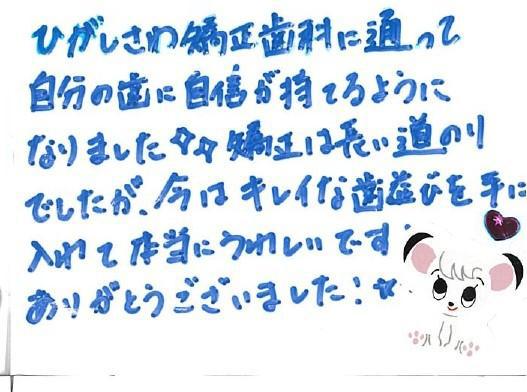 ひがしさわ矯正歯科に通って
自分の歯に自信が持てるように
なりました☆☆矯正は長い道のり
でしたが、今はキレイな歯並びを手に
入れて本当にうれしいです
ありがとうございました！☆